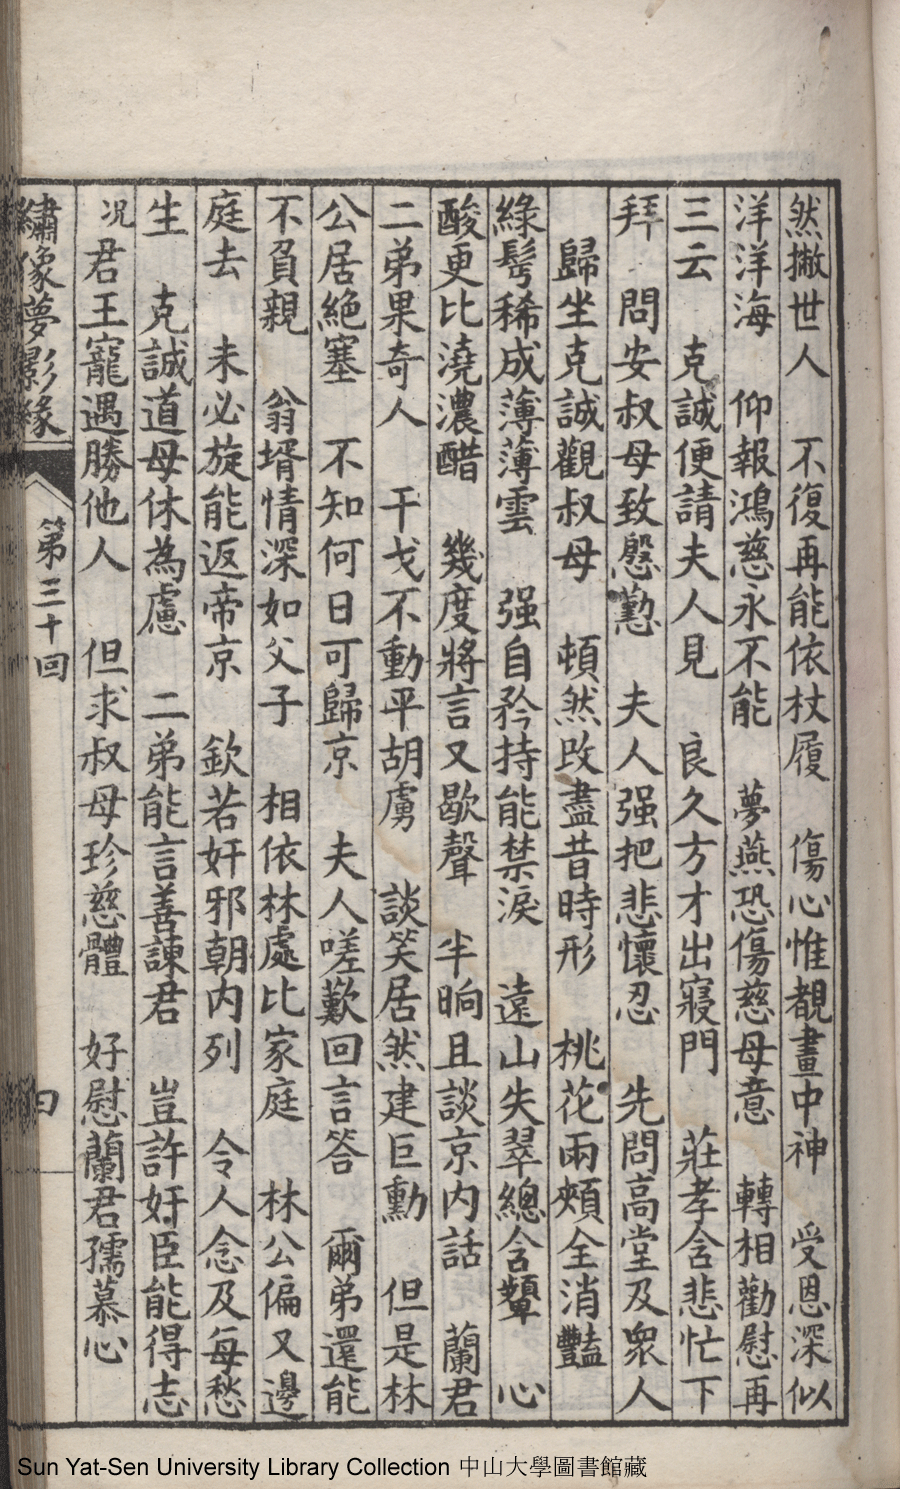 然撇世人　不復再能依杖履　傷心惟覩畫中神　受恩深似
洋洋海　仰報鴻慈永不能　夢燕恐傷慈母意　轉相勸慰再
三云　克誠便請夫人見　良久方才出寢門　莊孝含悲忙下
拜　問安叔母致慇懃　夫人强把悲懷忍　先問高堂及衆人
歸坐克誠觀叔母　頓然改盡昔時形　桃花兩頰全消豔
綠髩稀成薄薄雲　强自矜持能禁淚　遠山失翠總含顰　心
酸更比澆濃醋　幾度將言又歇聲　半晌且談京内話　蘭君
二弟果奇人　干戈不動平胡虜　談笑居然建巨勳　但是林
公居絶塞　不知何日可歸京　夫人嗟歎回言答　爾弟還能
不負親　翁壻情深如父子　相依林處比家庭　林公偏又邊
庭去　未必旋能返帝京　欽若奸邪朝内列　令人念及每愁
生　克誠道母休為慮　二弟能言善諫君　豈許奸臣能得志
况君王寵遇勝他人　但求叔母珍慈體　好慰蘭君孺慕心
繡像夢影緣　第三十回　四
Sun Yat-Sen University Library Collection 中山大學圖書館藏